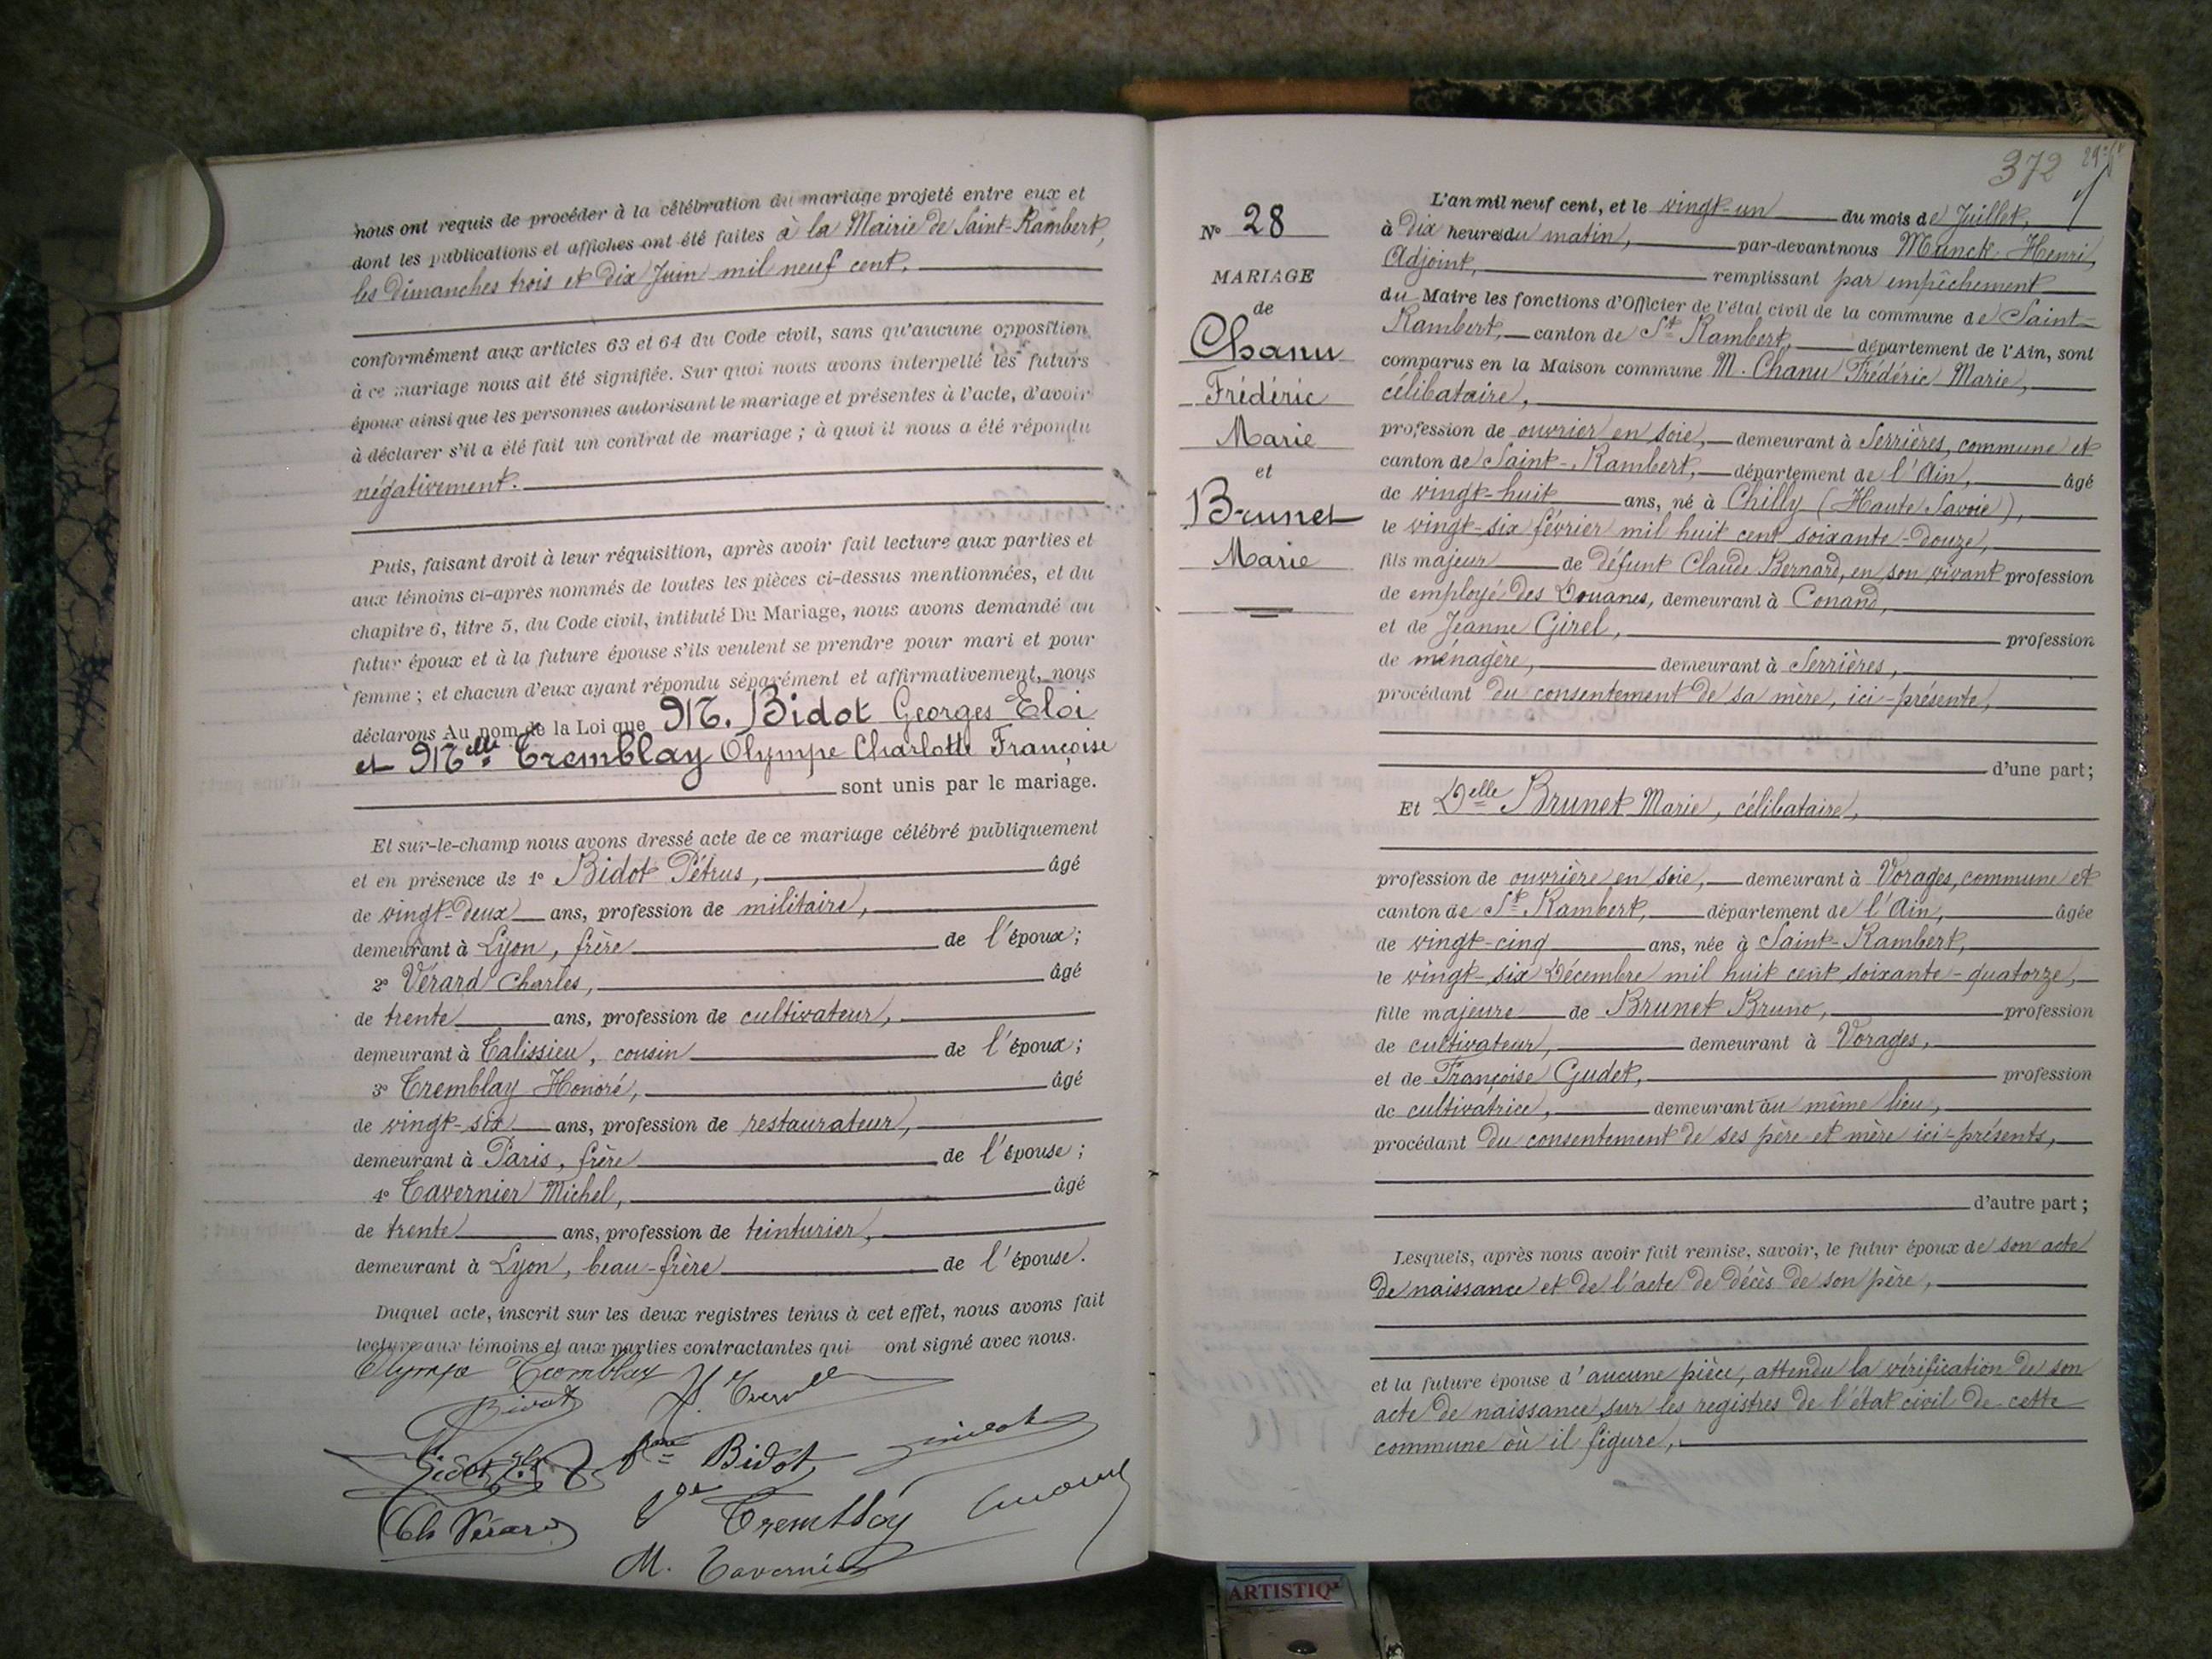 nous ont requis de procéder à la célébration du mariage projeté entre eux et
dont les publications et affiches ont été faites à la Mairie de Saint-Rambert,
les dimanches trois et dix Juin mil neuf cent.
conformément aux articles 63 et 64 du Code civil, sans qu'aucune opposition
à ce mariage nous ait été signifiée. Sur quoi nous avons interpellé les futurs
époux ainsi que les personnes autorisant le mariage et présentes à l'acte, d'avoir
à déclarer s'il a été fait un contrat de mariage ; à quoi il nous a été répondu
négativement.
Puis, faisant droit à leur réquisition, après avoir fait lecture aux parties et
aux témoins ci-après nommés de toutes les pièces ci-dessus mentionnées, et du
chapitre 6, titre 5, du Code civil, intitulé Du Mariage, nous avons demandé au
futur époux et à la future épouse s'ils veulent se prendre pour mari et pour
femme ; et chacun d'eux ayant répondu séparément et affirmativement, nous
déclarons Au nom de la Loi que M. Bidot Georges Eloi
et Melle Tremblay Olympe Charlotte Françoise
sont unis par le mariage.
Et sur-le-champ nous avons dressé acte de ce mariage célébré publiquement
et en présence de 1° Bidot Pétrus, âgé
de vingt-deux ans, profession de militaire,
demeurant à Lyon, frère de l'époux ;
2° Vérard Charles, âgé
de trente ans, profession de cultivateur,
demeurant à Talissieu, cousin de l'époux ;
3° Tremblay Honoré, âgé
de vingt-six ans, profession de restaurateur,
demeurant à Paris, frère de l'épouse ;
4° Tavernier Michel, âgé
de trente ans, profession de teinturier,
demeurant à Lyon, beau-frère de l'épouse.
Duquel acte, inscrit sur les deux registres tenus à cet effet, nous avons fait
lecture aux témoins et aux parties contractantes qui ont signé avec nous.
Olympe Tremblay
Bidot
Bidot
Ch Vérard
Vve Tremblay
M. Tavernier
372
N° 28
MARIAGE
de
Chanu
Frédéric
Marie
et
Brunet
Marie
L'an mil neuf cent, et le vingt-un du mois de Juillet,
à dix heures du matin, par-devant nous Munck Henri,
Adjoint, remplissant par empêchement
du Maire les fonctions d'Officier de l'état civil de la commune de Saint-
Rambert, canton de St Rambert, département de l'Ain, sont
comparus en la Maison commune M. Chanu Frédéric Marie,
célibataire,
profession de ouvrier en soie, demeurant à Serrières, commune et
canton de Saint-Rambert, département de l'Ain, âgé
de vingt-huit ans, né à Chilly (Haute Savoie),
le vingt-six février mil huit cent soixante-douze,
fils majeur de défunt Claude Bernard, en son vivant profession
de employé des Douanes, demeurant à Conand,
et de Jeanne Girel, profession
de ménagère, demeurant à Serrières,
procédant du consentement de sa mère, ici-présente,
d'une part ;
Et Delle Brunet Marie, célibataire,
profession de ouvrière en soie, demeurant à Vorages, commune et
canton de St Rambert, département de l'Ain, âgée
de vingt-cinq ans, née à Saint-Rambert,
le vingt-six Décembre mil huit cent soixante-quatorze,
fille majeure de Brunet Bruno, profession
de cultivateur, demeurant à Vorages,
et de Françoise Gudet, profession
de cultivatrice, demeurant au même lieu,
procédant du consentement de ses père et mère ici-présents,
d'autre part ;
Lesquels, après nous avoir fait remise, savoir, le futur époux de son acte
de naissance et de l'acte de décès de son père,
et la future épouse d'aucune pièce, attendu la vérification de son
acte de naissance sur les registres de l'état civil de cette
commune où il figure,
ARTISTIQ